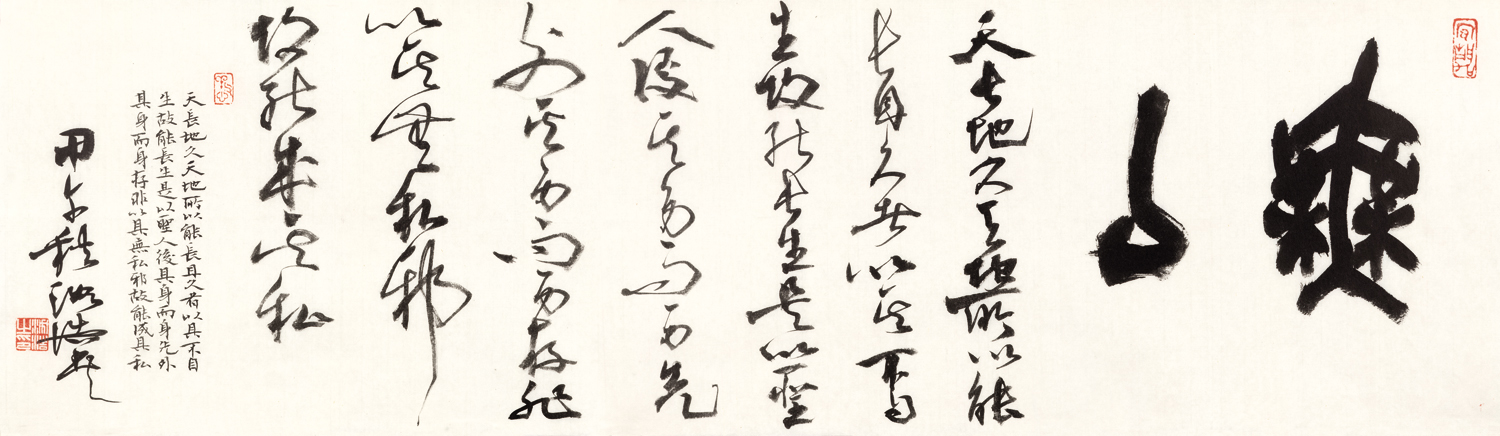 無厶
天長地久天地所以能
長且久者以其不自
生故能長生是以聖
人後其身而身先
外其身而身存非
以其無私邪
故能成其私
天長地久天地所以能長且久者以其不自
生故能長生是以聖人後其身而身先外
其身而身存非以其無私邪故能成其私
甲午秋